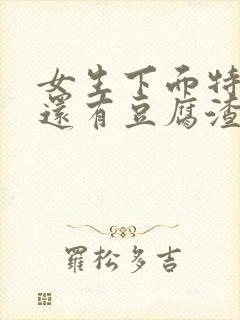 女生下面特
還有豆腐渣
羅松多吉